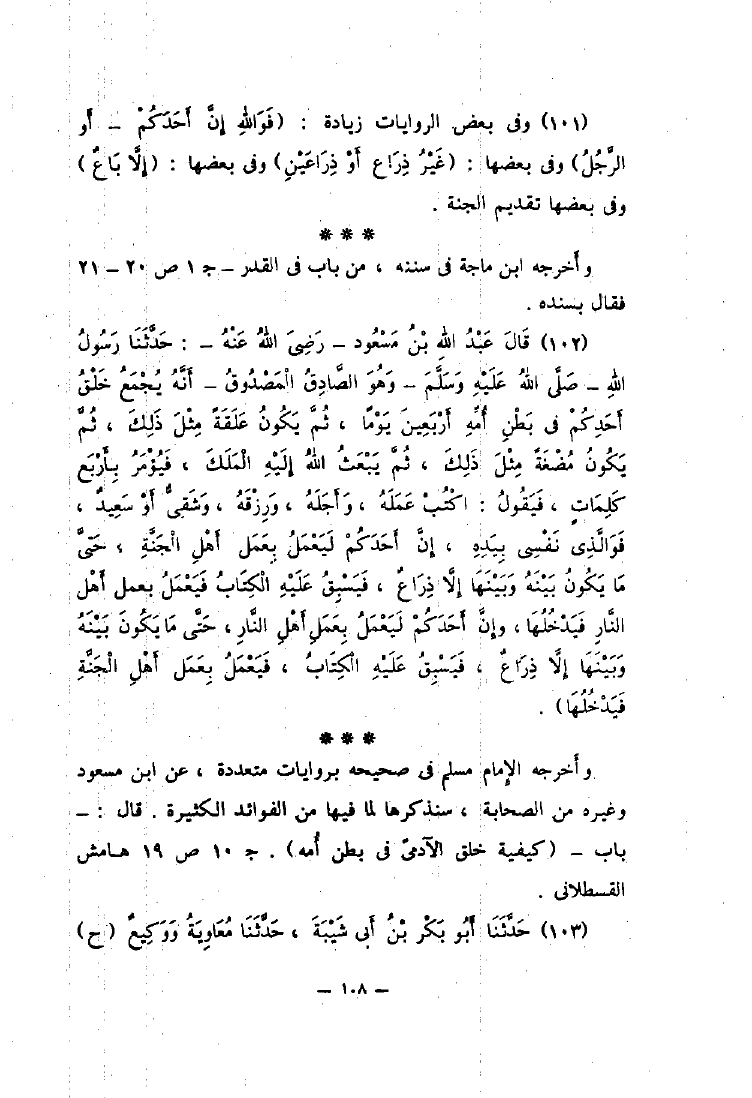 (١٠١) وفى بعض الروايات زيادة : (فَوَاللهِ إِنَّ أَحَدَكُمْ – أَو
الرَّجُلُ) وفى بعضها : (غَيْرُ ذِرَاع أَوْ ذِرَاعَيْنِ) وفى بعضها : (إِلَّا بَاعٌ)
وفى بعضها تقديم الجنة .
***
وأخرجه ابن ماجة فى سننه ، من باب فى القدر – ج ١ ص ٢٠ – ٢١
فقال بسنده .
(١٠٢) قَالَ عَبْدُ اللهِ بْنُ مَسْعُود – رَضِىَ اللهُ عَنْهُ – : حَدَّثَنَا رَسُولُ
اللهِ – صَلَّى اللهُ عَلَيْهِ وَسَلَّمَ – وَهُوَ الصَّادِقُ الْمَصْدُوقُ – أَنَّهُ يُجْمَعُ خَلْقُ
أَحَدِكُمْ فى بَطْنِ أُمِّهِ أَرْبَعِينَ يَوْمًا ، ثُمَّ يَكُونُ عَلَقَةً مِثْلَ ذَلِكَ ، ثُمَّ
يَكُونُ مُضْغَةً مِثْلَ ذَلِكَ ، ثُمَّ يَبْعَثُ اللهُ إِلَيْهِ الْمَلَكَ ، فَيُؤْمَرُ بِأَرْبَعِ
كَلِمَاتٍ ، فَيَقُولُ : اكْتُبْ عَمَلَهُ ، وَأَجَلَهُ ، وَرِزْقَهُ ، وَشَقِىٌّ أَوْ سَعِيدٌ ،
فَوَالَّذِى نَفْسِى بِيَدِهِ ، إِنَّ أَحَدَكُمْ لَيَعْمَلُ بِعَمَلِ أَهْلِ الْجَنَّةِ ، حَتَّى
مَا يَكُونُ بَيْنَهُ وَبَيْنَهَا إِلَّا ذِرَاعٌ ، فَيَسْبِقُ عَلَيْهِ الْكِتَابُ فَيَعْمَلُ بعمل أهْل
النَّارِ فَيَدْخُلُهَا ، وإِنَّ أَحَدَكُمْ لَيَعْمَلُ بِعَمَلِ أَهْلِ النَّارِ ، حَتَّى مَا يَكُونَ بَيْنَهُ
وَبَيْنَهَا إِلَّا ذِرَاعٌ ، فَيَسْبِقُ عَلَيْهِ الْكِتَابُ ، فَيَعْمَلُ بِعَمَلِ أَهْلِ الْجَنَّةِ
فَيَدْخُلُهَا) .
***
وأخرجه الإمام مسلم فى صحيحه بروايات متعددة ، عن ابن مسعود
وغيره من الصحابة ، سنذكرها لما فيها من الفوائد الكثيرة . قال : –
باب – (كيفية خلق الآدمىّ فى بطن أُمه) . ج ١٠ ص ١٩ هامش
القسطلانى .
(١٠٣) حَدَّثَنَا أَبُو بَكْر بْنُ أَبى شَيْبَةَ ، حَدَّثَنَا مُعَاوِيَةُ وَوَكِيعٌ (ح)
– ١٠٨ –